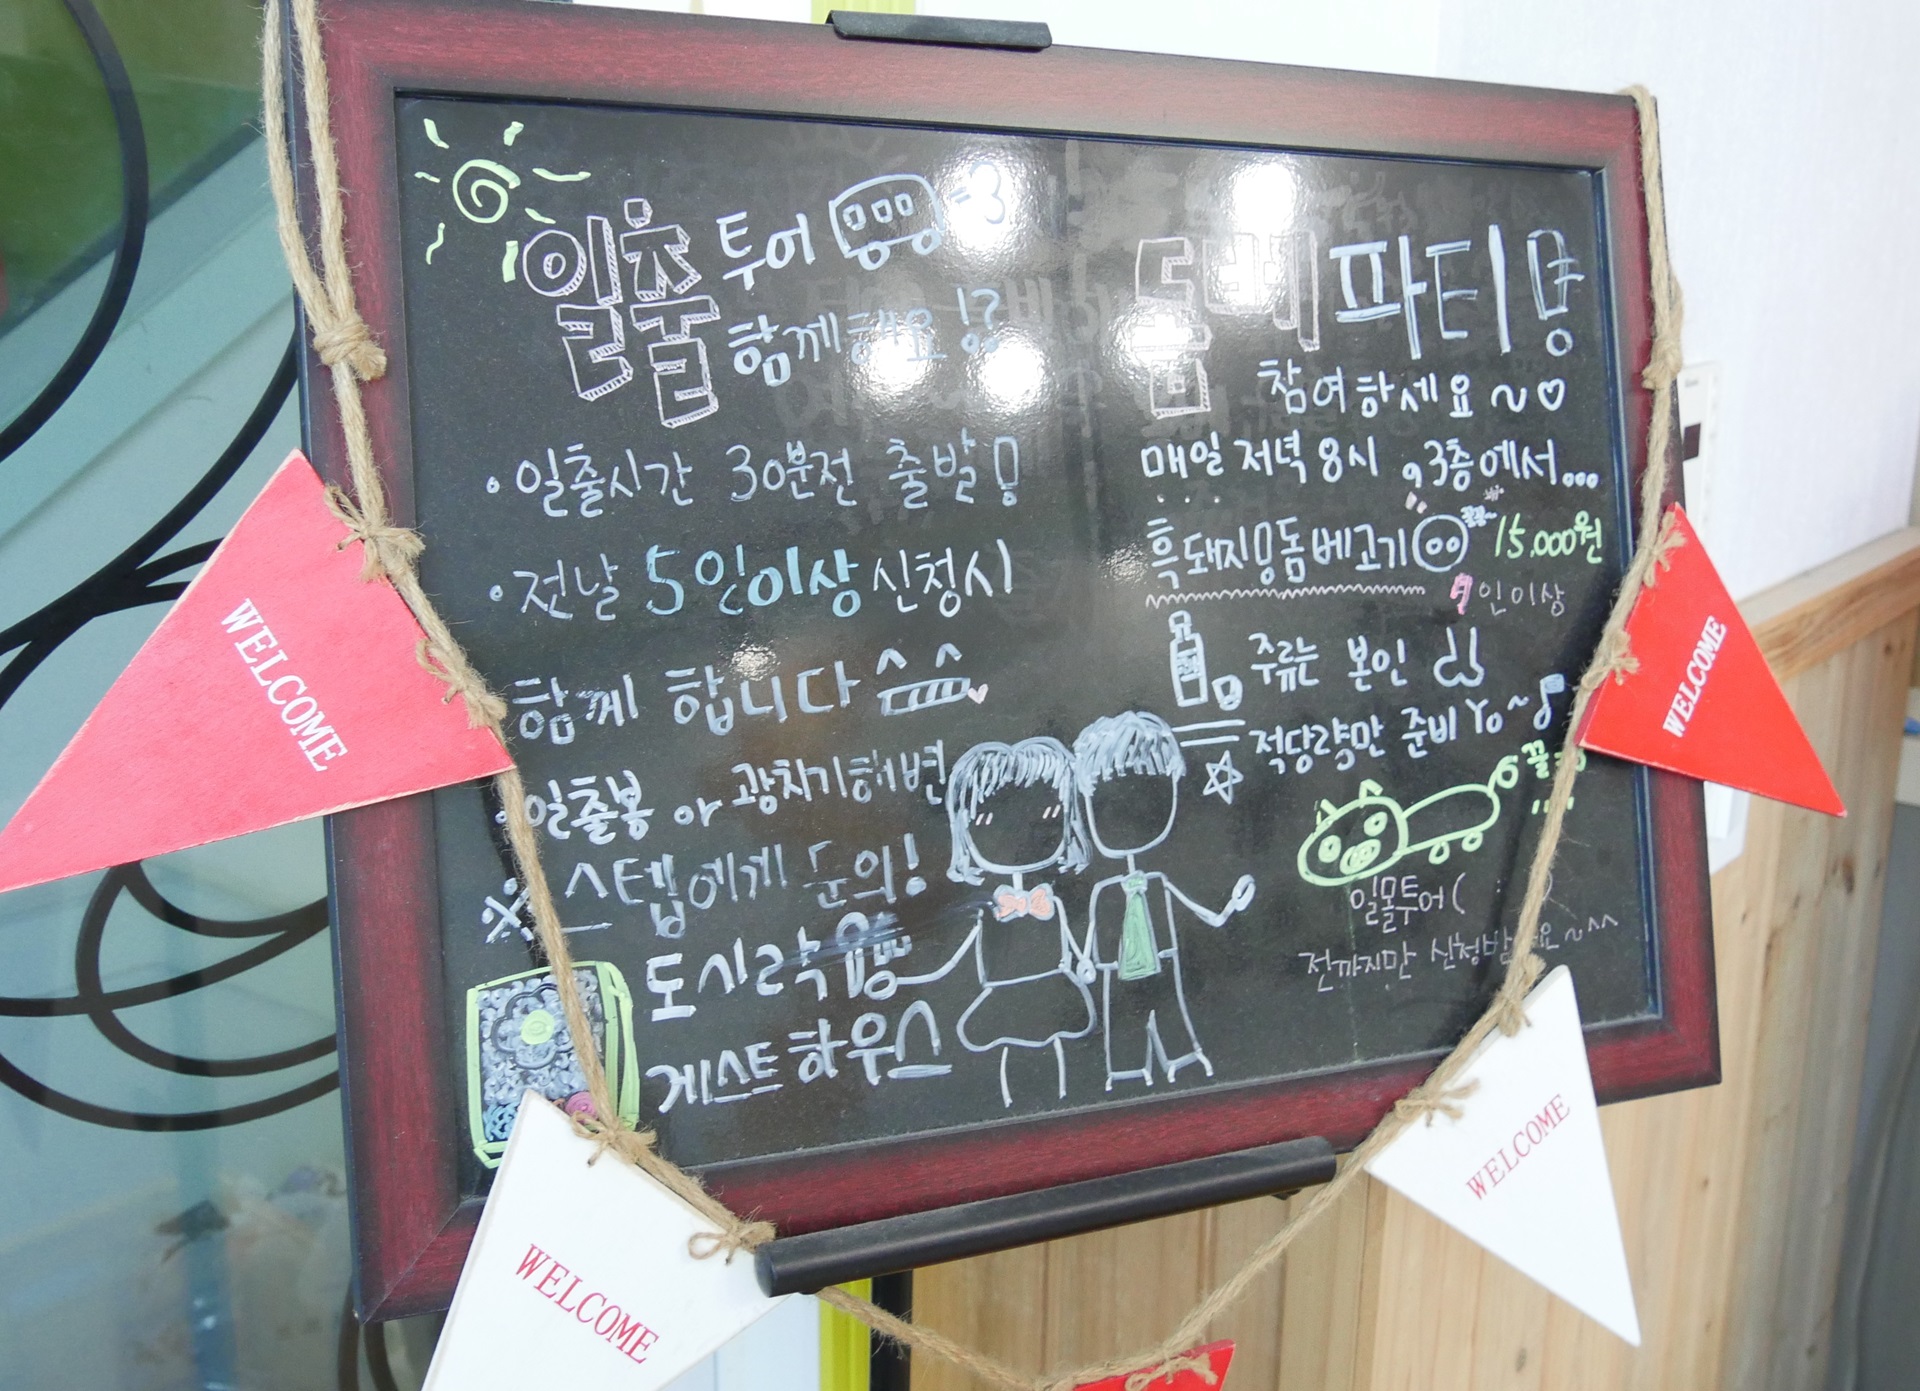 일출 투어
함께해요!?
· 일출시간 30분전 출발!
· 전날 5인이상 신청시
함께 합니다
· 일출봉 or 광치기해변
※ 스텝에게 문의!
도시락
게스트하우스
돔베 파티!
참여하세요~♡
매일 저녁 8시, 3층에서...
흑돼지 돔베고기 15,000원
인이상
주류는 본인
적당량만 준비Yo~♪
일몰투어(
전까지만
WELCOME
WELCOME
WELCOME
WELCOME